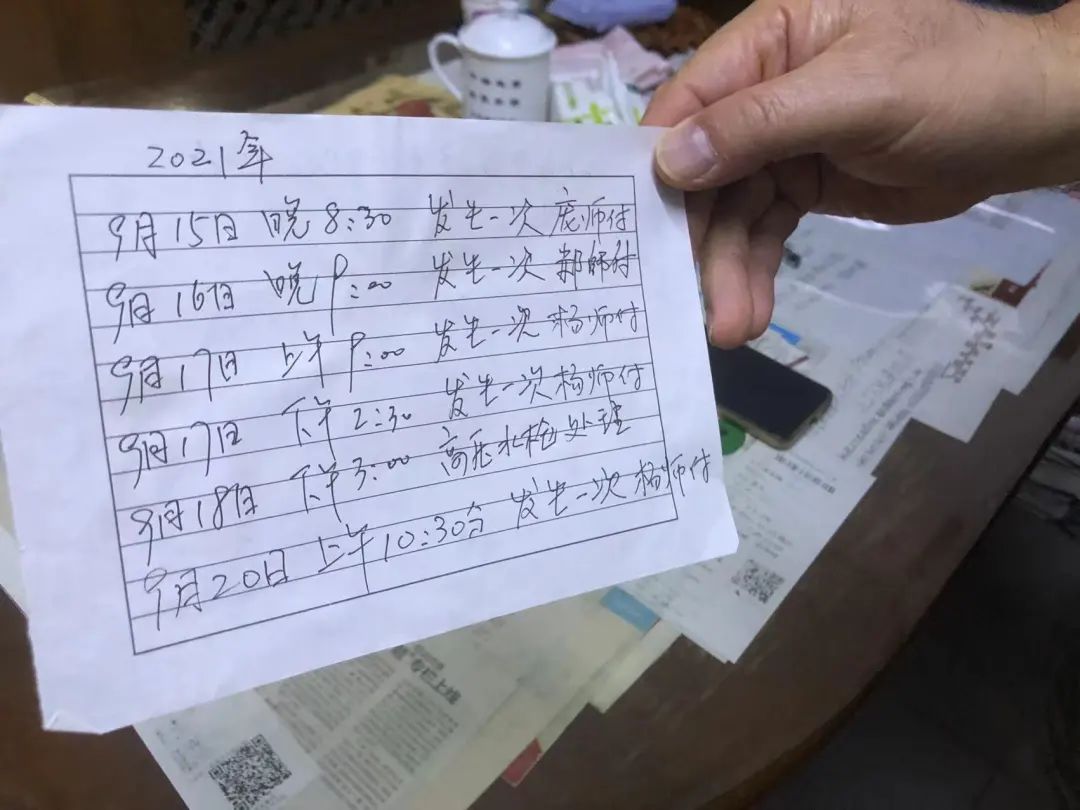 2021年
9月15日 晚8:30 发生一次 庞师付
9月16日 晚9:00 发生一次 郑师付
9月17日 上午9:00 发生一次 杨师付
9月17日 下午2:30 发生一次杨师付
9月18日 下午3:00 高压水枪处理
9月20日 上午10:30分 发生一次 杨师付